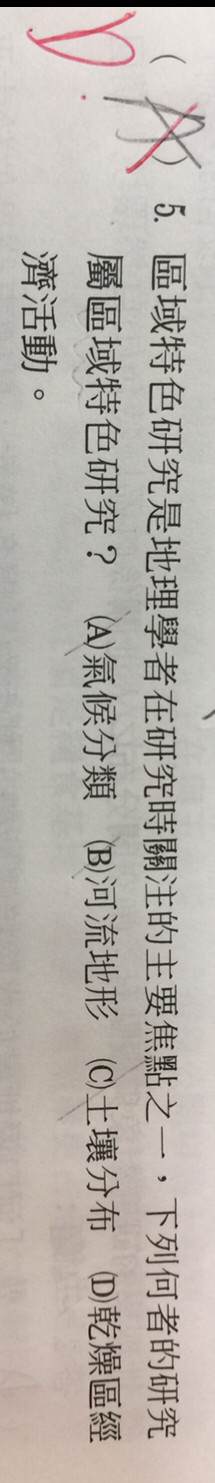 D
( A ) 5. 區域特色研究是地理學者在研究時關注的主要焦點之一，下列何者的研究
屬區域特色研究？ (A)氣候分類 (B)河流地形 (C)土壤分布 (D)乾燥區經
濟活動。